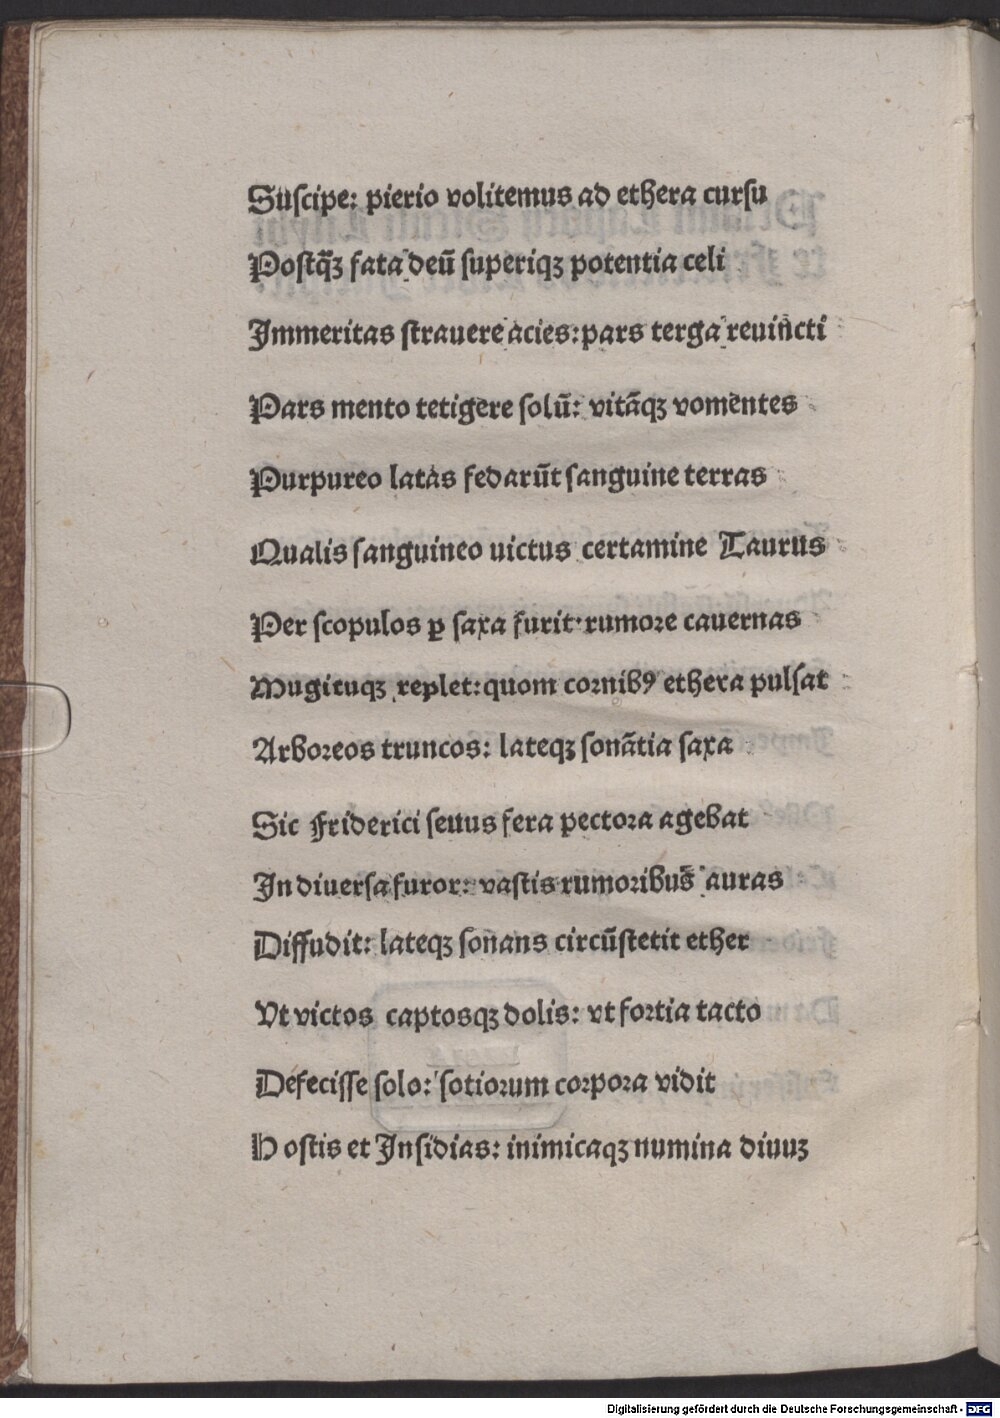 Suſcipe: pierio volitemus ad ethera curſu
Poſtq̃ꝫ fata deũ ſuperiqꝫ potentia celi
Immeritas ſtrauere acies: pars terga reuincti
Pars mento tetigere ſolũ: vitãqꝫ vomentes
Purpureo latas fedarũt ſanguine terras
Qualis ſanguineo uictus certamine Taurus
Per ſcopulos ꝑ ſaxa furit· rumoꝛe cauernas
Mugituqꝫ replet: quom coꝛnibꝰ ethera pulſat
Arboꝛeos truncos: lateqꝫ ſonãtia ſaxa
Sic Friderici ſeuus fera pectoꝛa agebat
In diuerſa furor: vaſtis rumoꝛibus auras
Diffudit: lateqꝫ ſonans circũſtetit ether
Vt victos captosqꝫ dolis: vt foꝛtia tacto
Defeciſſe ſolo: ſotioꝛum coꝛpoꝛa vidit
Hoſtis et Inſidias: inimicaqꝫ numina diuuꝫ
Digitalisierung gefördert durch die Deutsche Forschungsgemeinschaft - DFG